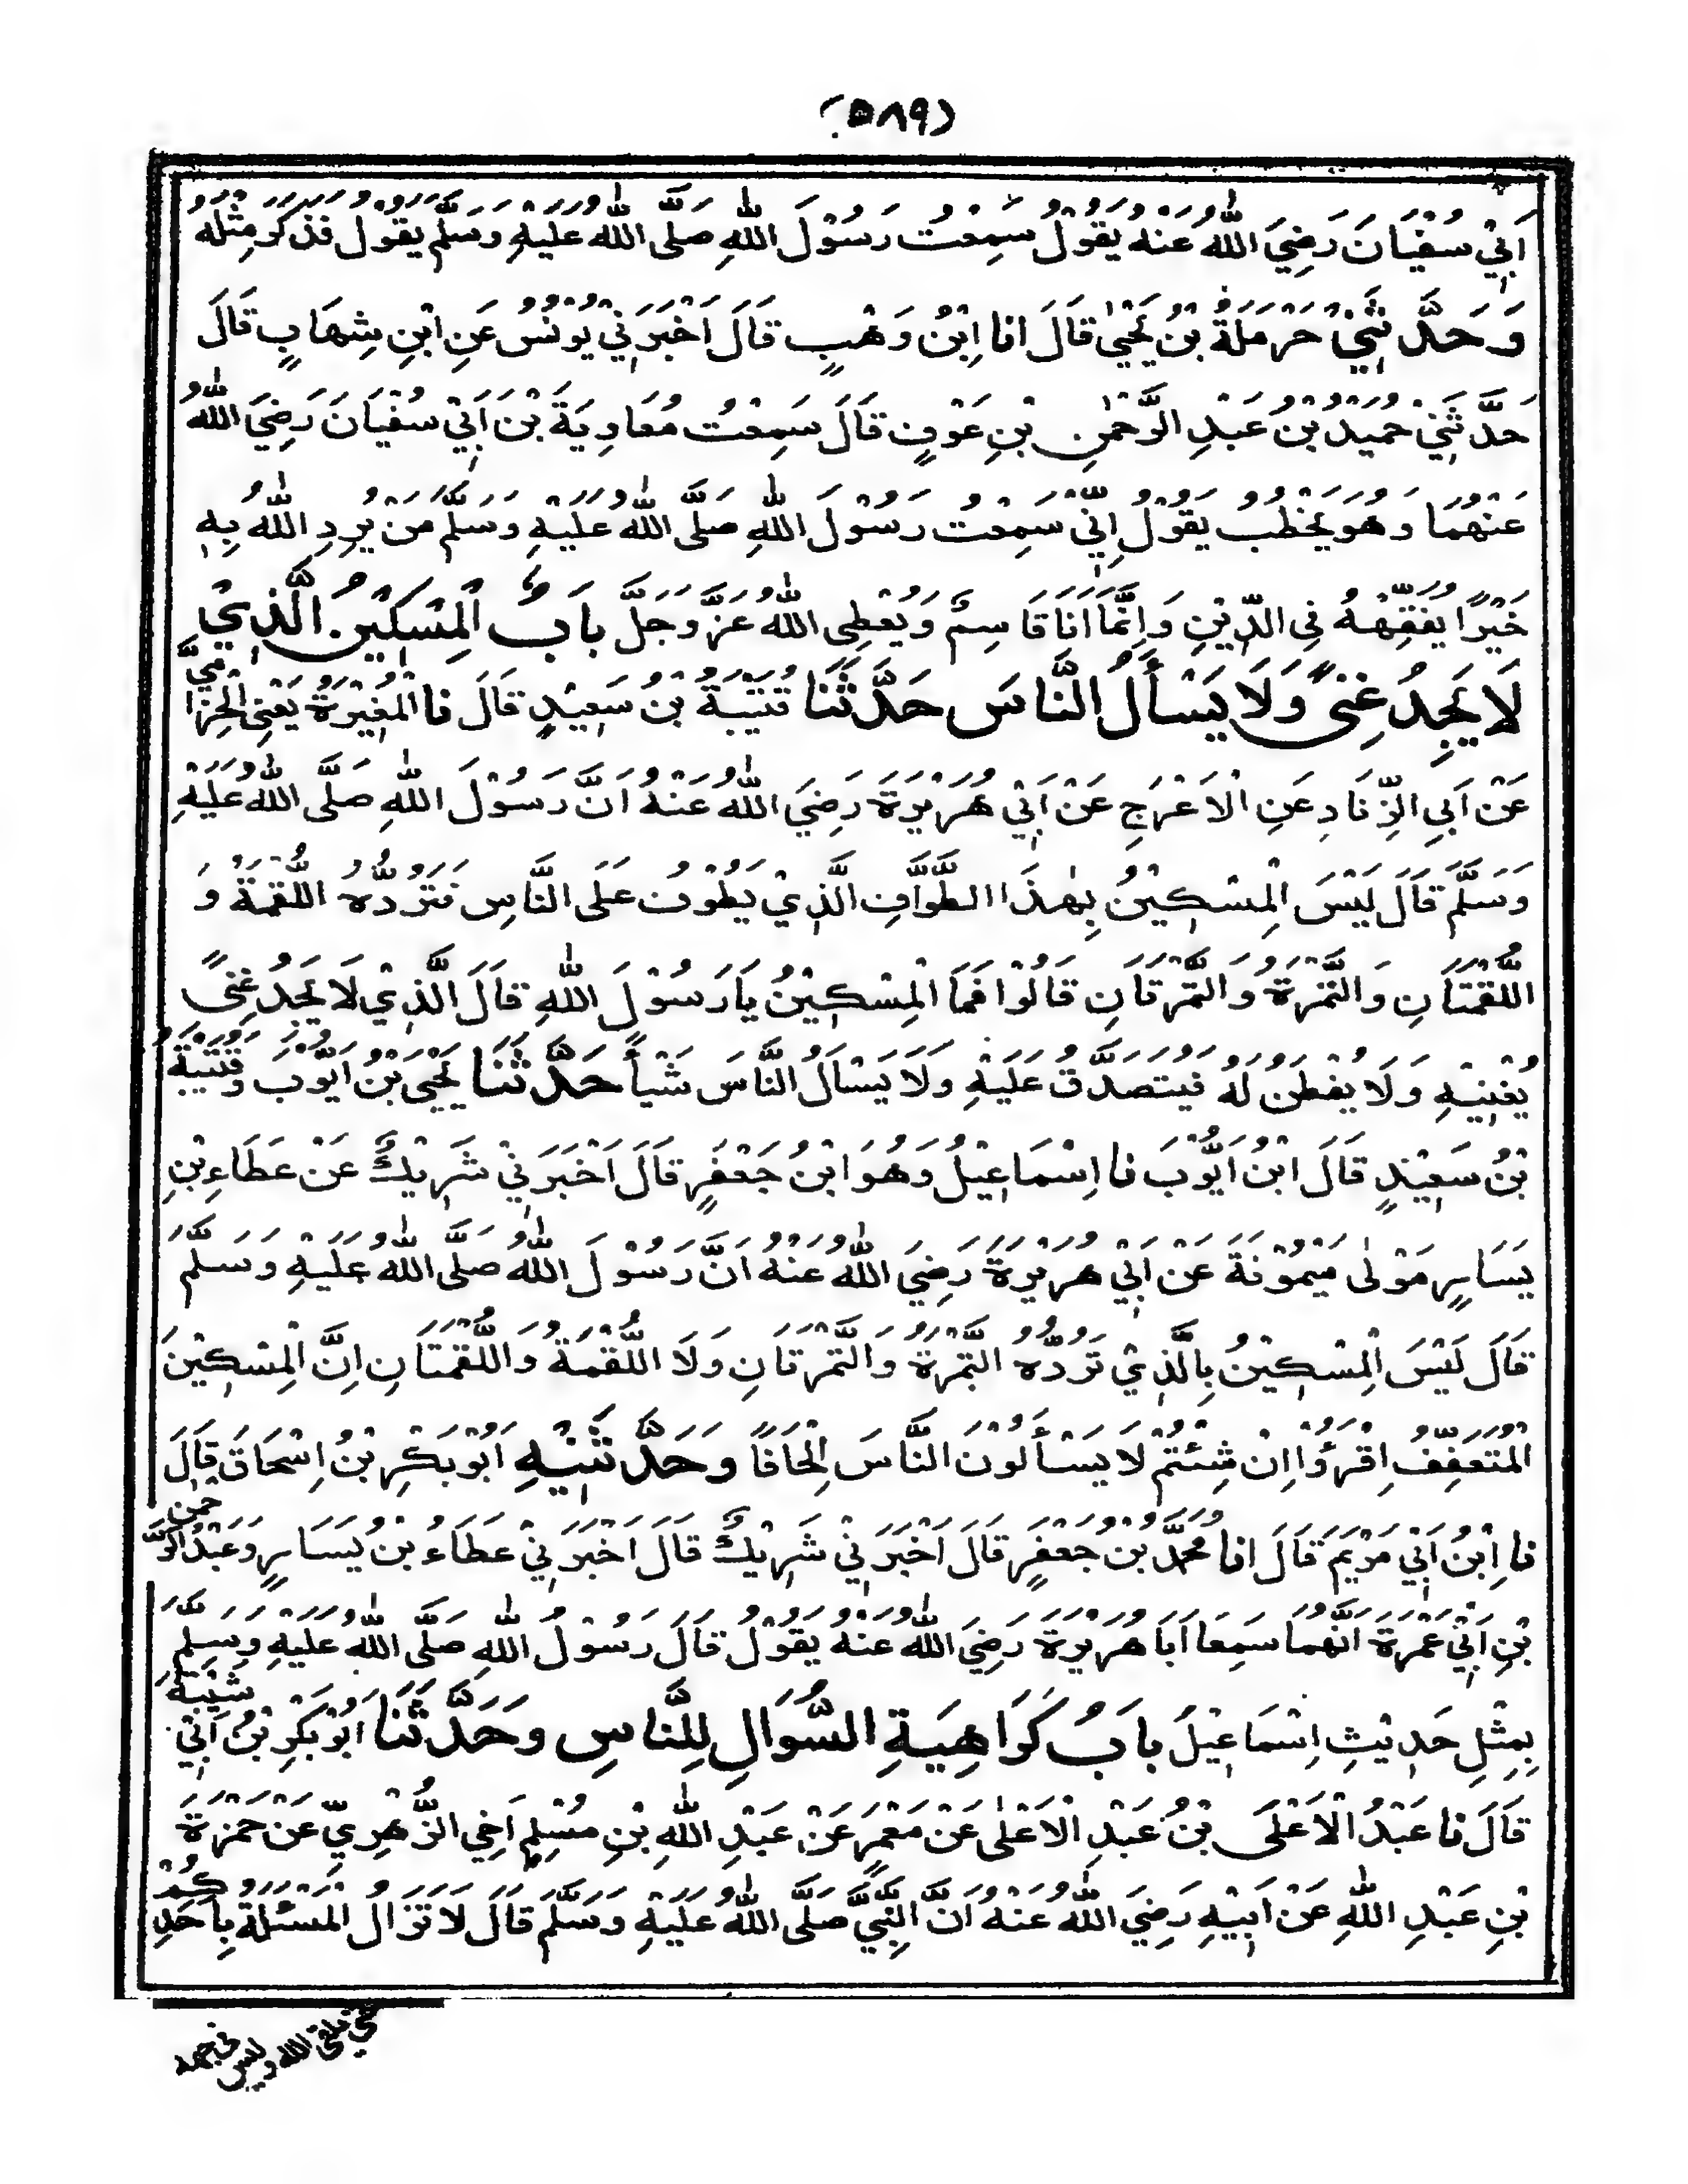 (٥٨٩)
اَبِيْ سُفْيَانَ رَضِيَ اللّٰهُ عَنْهُ يَقُوْلُ سَمِعْتُ رَسُوْلَ اللّٰهِ صَلَّى اللّٰهُ عَلَيْهِ وَسَلَّمَ يَقُوْلُ فَذَكَرَ مِثْلَهُ
وَحَدَّثَنِيْ حَرْمَلَةُ بْنُ يَحْيٰى قَالَ انا اِبْنُ وَهْبٍ قَالَ اَخْبَرَنِيْ يُوْنُسُ عَنِ ابْنِ شِهَابٍ قَالَ
حَدَّثَنِيْ حُمَيْدُ بْنُ عَبْدِ الرَّحْمٰنِ بْنِ عَوْفٍ قَالَ سَمِعْتُ مُعَاوِيَةَ بْنَ اَبِيْ سُفْيَانَ رَضِيَ اللّٰهُ
عَنْهُمَا وَهُوَ يَخْطُبُ يَقُوْلُ اِنِّيْ سَمِعْتُ رَسُوْلَ اللّٰهِ صَلَّى اللّٰهُ عَلَيْهِ وَسَلَّمَ مَنْ يُرِدِ اللّٰهُ بِهٖ
خَيْرًا يُفَقِّهْهُ فِي الدِّيْنِ وَاِنَّمَا اَنَا قَاسِمٌ وَيُعْطِى اللّٰهُ عَزَّ وَجَلَّ بَابُ الْمِسْكِيْنِ الَّذِيْ
لَا يَجِدُ غِنًى وَلَا يَسْأَلُ النَّاسَ حَدَّثَنَا قُتَيْبَةُ بْنُ سَعِيْدٍ قَالَ نا الْمُغِيْرَةُ يَعْنِى الْحِزَامِيَّ
عَنْ اَبِي الزِّنَادِ عَنِ الْاَعْرَجِ عَنْ اَبِيْ هُرَيْرَةَ رَضِيَ اللّٰهُ عَنْهُ اَنَّ رَسُوْلَ اللّٰهِ صَلَّى اللّٰهُ عَلَيْهِ
وَسَلَّمَ قَالَ لَيْسَ الْمِسْكِيْنُ بِهٰذَا الطَّوَّافِ الَّذِيْ يَطُوْفُ عَلَى النَّاسِ فَتَرُدُّهُ اللُّقْمَةُ وَ
اللُّقْمَتَانِ وَالتَّمْرَةُ وَالتَّمْرَتَانِ قَالُوْا فَمَا الْمِسْكِيْنُ يَا رَسُوْلَ اللّٰهِ قَالَ الَّذِيْ لَا يَجِدُ غِنًى
يُغْنِيْهِ وَلَا يُفْطَنُ لَهُ فَيُتَصَدَّقُ عَلَيْهِ وَلَا يَسْاَلُ النَّاسَ شَيْأً حَدَّثَنَا يَحْيَى بْنُ اَيُّوْبَ وَقُتَيْبَةُ
بْنُ سَعِيْدٍ قَالَ ابْنُ اَيُّوْبَ نا اِسْمَاعِيْلُ وَهُوَ ابْنُ جَعْفَرٍ قَالَ اَخْبَرَنِيْ شَرِيْكٌ عَنْ عَطَاءِ بْنِ
يَسَارٍ مَوْلٰى مَيْمُوْنَةَ عَنْ اَبِيْ هُرَيْرَةَ رَضِيَ اللّٰهُ عَنْهُ اَنَّ رَسُوْلَ اللّٰهِ صَلَّى اللّٰهُ عَلَيْهِ وَسَلَّمَ
قَالَ لَيْسَ الْمِسْكِيْنُ بِالَّذِيْ تَرُدُّهُ التَّمْرَةُ وَالتَّمْرَتَانِ وَلَا اللُّقْمَةُ وَاللُّقْمَتَانِ اِنَّ الْمِسْكِيْنَ
الْمُتَعَفِّفُ اِقْرَؤُا اِنْ شِئْتُمْ لَا يَسْأَلُوْنَ النَّاسَ اِلْحَافًا وَحَدَّثَنِيْهِ اَبُوْ بَكْرِ بْنُ اِسْحَاقَ قَالَ
نا اِبْنُ اَبِيْ مَرْيَمَ قَالَ انا مُحَمَّدُ بْنُ جَعْفَرٍ قَالَ اَخْبَرَنِيْ شَرِيْكٌ قَالَ اَخْبَرَنِيْ عَطَاءُ بْنُ يَسَارٍ وَعَبْدُ الرَّحْمٰنِ
بْنِ اَبِيْ عَمْرَةَ اَنَّهُمَا سَمِعَا اَبَا هُرَيْرَةَ رَضِيَ اللّٰهُ عَنْهُ يَقُوْلُ قَالَ رَسُوْلُ اللّٰهِ صَلَّى اللّٰهُ عَلَيْهِ وَسَلَّمَ
بِمِثْلِ حَدِيْثِ اِسْمَاعِيْلَ بَابُ كَرَاهِيَةِ السُّوَالِ لِلنَّاسِ وَحَدَّثَنَا اَبُوْ بَكْرِ بْنُ اَبِيْ شَيْبَةَ
قَالَ نا عَبْدُ الْاَعْلَى بْنُ عَبْدِ الْاَعْلٰى عَنْ مَعْمَرٍ عَنْ عَبْدِ اللّٰهِ بْنِ مُسْلِمٍ اَخِي الزُّهْرِيِّ عَنْ حَمْزَةَ
بْنِ عَبْدِ اللّٰهِ عَنْ اَبِيْهِ رَضِيَ اللّٰهُ عَنْهُ اَنَّ النَّبِيَّ صَلَّى اللّٰهُ عَلَيْهِ وَسَلَّمَ قَالَ لَا تَزَالُ الْمَسْئَلَةُ بِاَحَدِكُمْ
حتى يلقى الله وليس فى وجهه